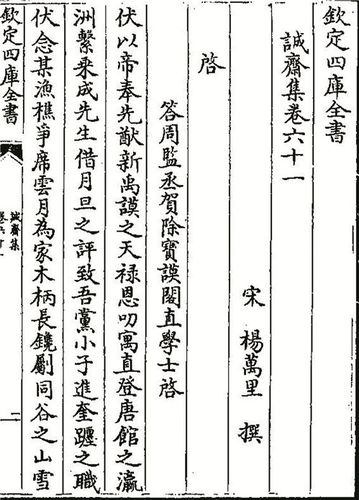 欽定四庫全書
誠齋集卷六十一
宋 楊萬里 撰
啓
答周監丞賀除寳謨閣直學士啓
伏以帝奉先猷新禹謨之天禄恩叨寓直登唐館之瀛
洲繫来成先生借月旦之評致吾黨小子進奎躔之職
伏念某漁樵爭席雲月為家木柄長鑱劚同谷之山雪
欽定四庫全書
誠齋集
卷六十一